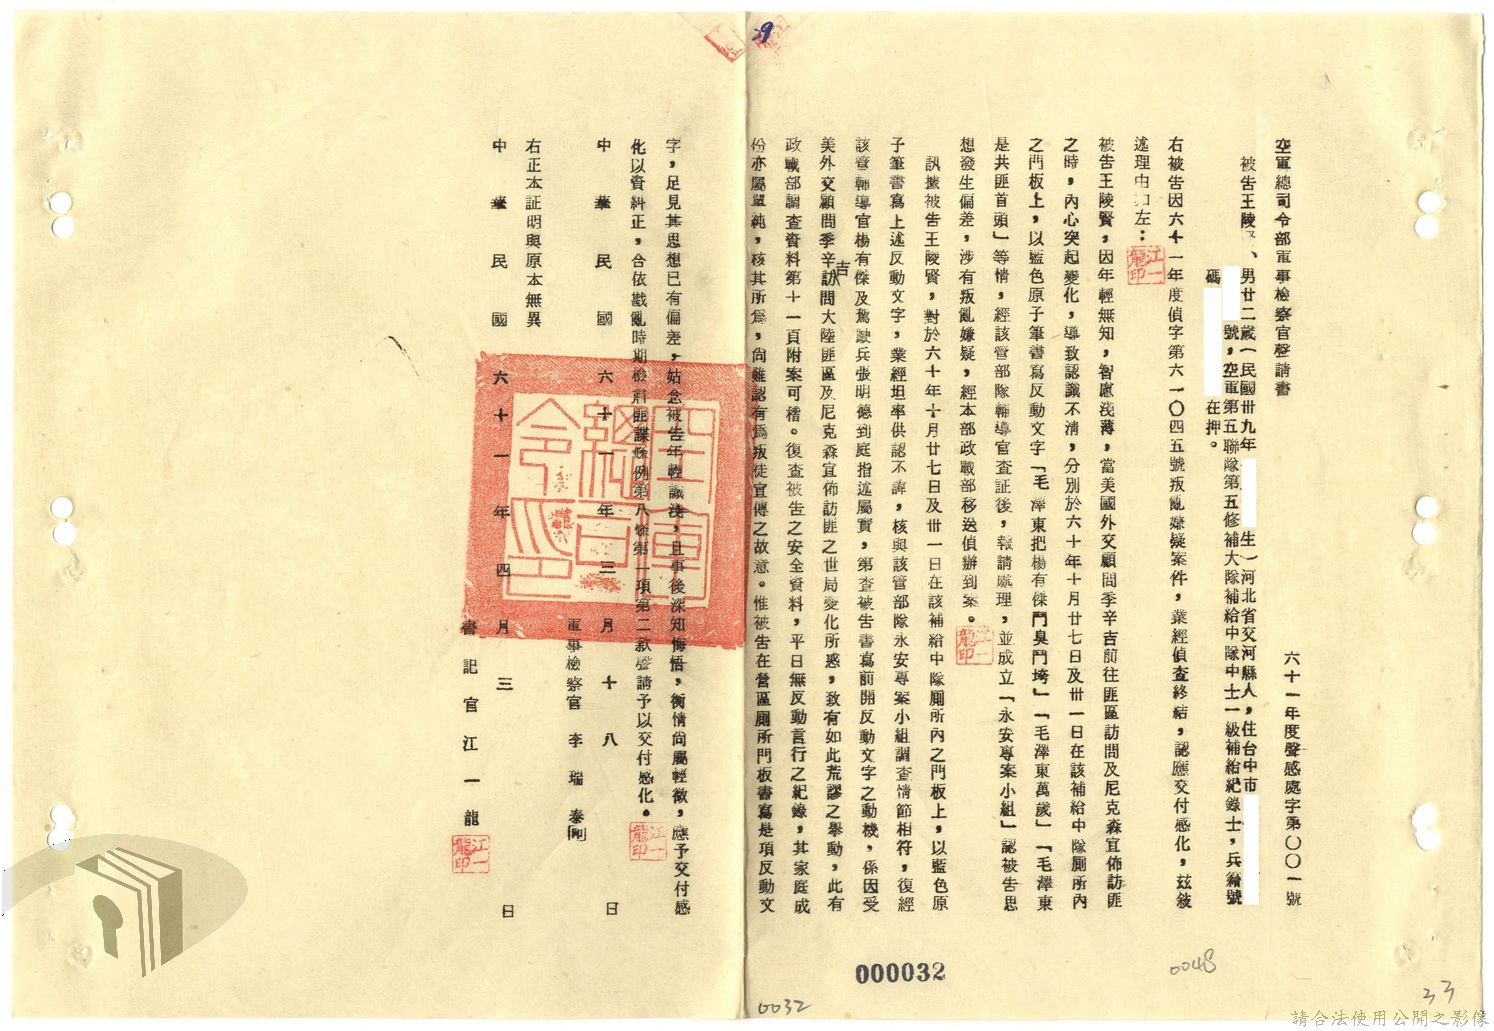 29
空軍總司令部軍事檢察官聲請書
六十一年度聲感處字第〇〇一號
被告王陵 、男廿二歲(民國卅九年 生)河北省交河縣人,住台中市
號,空軍第五聯隊第五修補大隊補給中隊中士一級補給紀錄士,兵籍號
碼 在押。
右被告因六十一年度偵字第六一〇四五號叛亂嫌疑案件,業經偵查終結,認應交付感化,茲敘
述理由如左:
江一龍印
被告王陵賢,因年輕無知,智慮淺薄,當美國外交顧問季辛吉前往匪區訪問及尼克森宣佈訪匪
之時,內心突起變化,導致認識不清,分別於六十年十月廿七日及卅一日在該補給中隊厠所內
之門板上,以藍色原子筆書寫反動文字「毛澤東把楊有傑鬥臭鬥垮」「毛澤東萬歲」「毛澤東
是共匪首頭」等情,經該管部隊輔導官查証後,報請處理,並成立「永安專案小組」認被告思
想發生偏差,涉有叛亂嫌疑,經本部政戰部移送偵辦到案。
江一龍印
訊據被告王陵賢,對於六十年十月廿七日及卅一日在該補給中隊厠所內之門板上,以藍色原
子筆書寫上述反動文字,業經坦率供認不諱,核與該管部隊永安專案小組調查情節相符,復經
該管輔導官楊有傑及駕駛兵張明德到庭指述屬實,第查被告書寫前開反動文字之動機,係因受
美外交顧問季辛吉訪問大陸匪區及尼克森宣佈訪匪之世局變化所惑,致有如此荒謬之舉動,此有
政戰部調查資料第十一頁附案可稽。復查被告之安全資料,平日無反動言行之紀錄,其家庭成
份亦屬單純,核其所為,尚難認有為叛徒宣傳之故意。惟被告在營區厠所門板書寫是項反動文
字,足見其思想已有偏差,姑念被告年輕識淺,且事後深知悔悟,衡情尚屬輕微,應予交付感
化以資糾正,合依戡亂時期檢肅匪諜條例第八條第一項第二款聲請予以交付感化。
江一龍印
中華民國六十一年三月十八日
軍事檢察官 李瑞泰
右正本証明與原本無異
中華民國六十一年四月三日
書記官江一龍
江一龍印
000032
0032
0048
33
請合法使用公開之影像